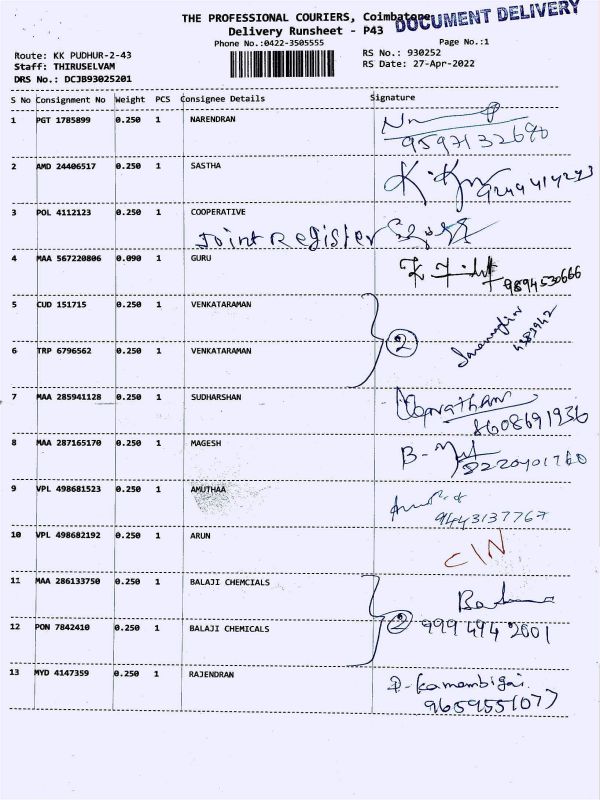 THE PROFESSIONAL COURIERS, Coimbatore
DOCUMENT DELIVERY
Delivery Runsheet - P43
Phone No.:0422-3505555
Page No.:1
Route: KK PUDHUR-2-43
RS No.: 930252
Staff: THIRUSELVAM
RS Date: 27-Apr-2022
DRS No.: DCJB93025201
S No Consignment No Weight PCS Consignee Details Signature
1 PGT 1785899 0.250 1 NARENDRAN
9597132690
2 AMD 24406517 0.250 1 SASTHA
9244414273
3 POL 4112123 0.250 1 COOPERATIVE
Joint Register
4 MAA 567220806 0.090 1 GURU
9894530666
5 CUD 151715 0.250 1 VENKATARAMAN
2
6 TRP 6796562 0.250 1 VENKATARAMAN
7 MAA 285941128 0.250 1 SUDHARSHAN
8608691936
8 MAA 287165170 0.250 1 MAGESH
8220401760
9 VPL 498681523 0.250 1 AMUTHAA
9443137767
10 VPL 498682192 0.250 1 ARUN
CIN
11 MAA 286133750 0.250 1 BALAJI CHEMCIALS
2 999 494 2001
12 PON 7842410 0.250 1 BALAJI CHEMICALS
13 MYD 4147359 0.250 1 RAJENDRAN
P-kamambigai
9659551077